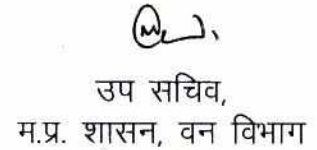 उप सचिव,
म.प्र. शासन, वन विभाग